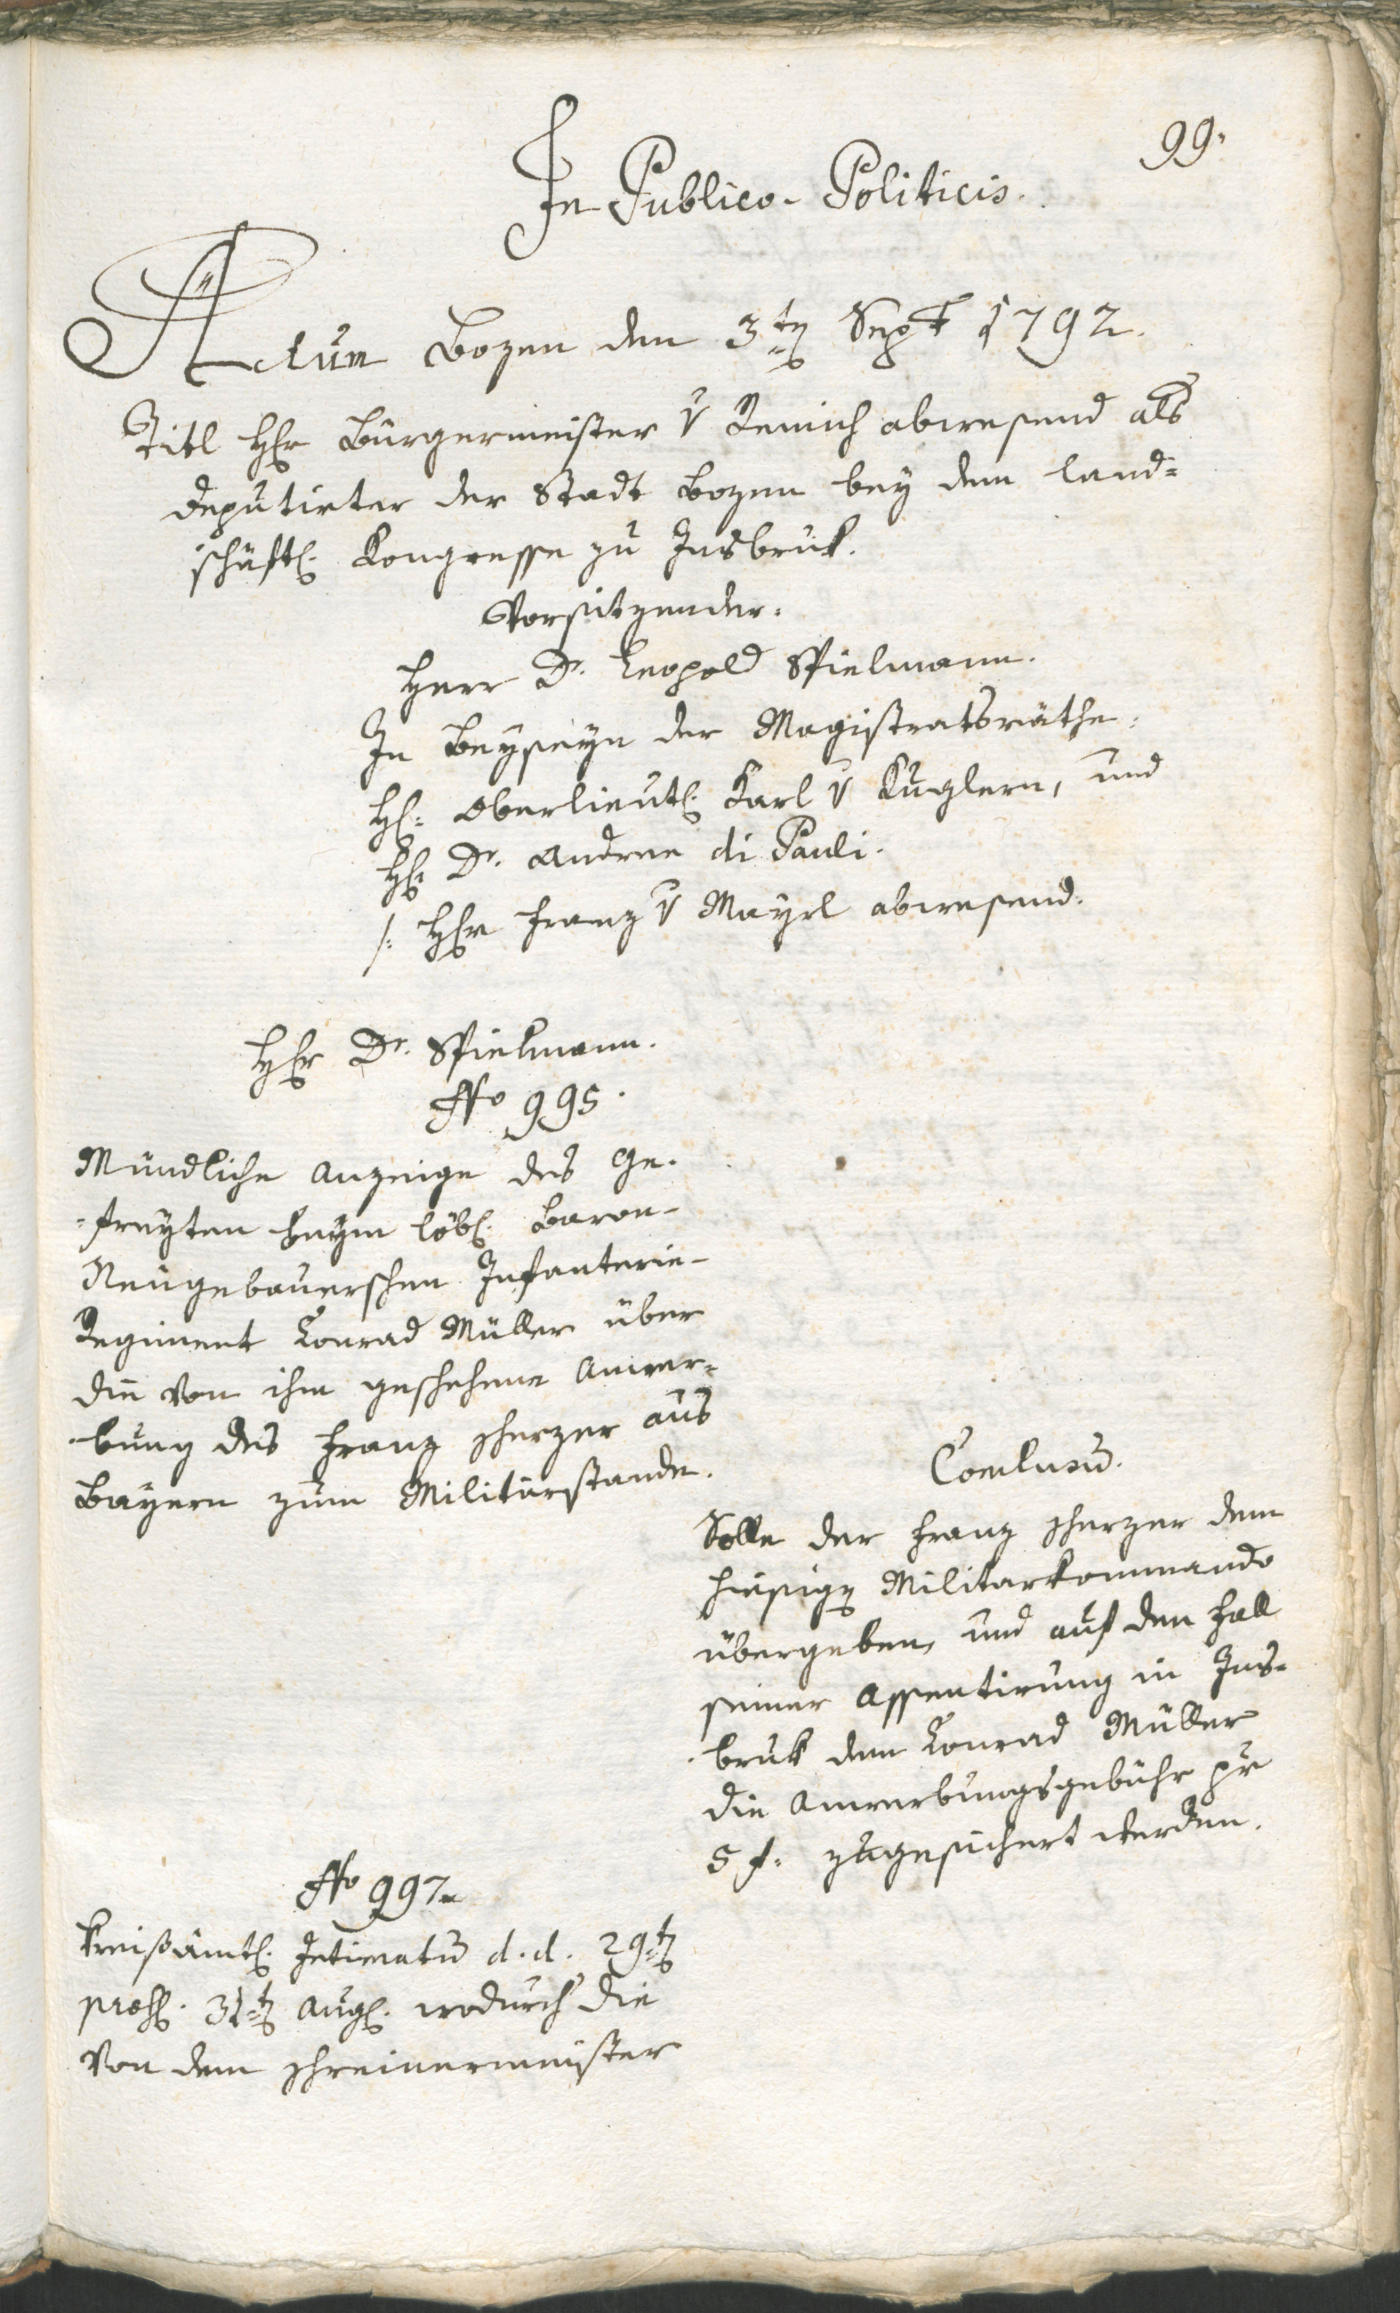 99.
In Publico-Politicis.
Actum Bozen den 3ten Sept 1792.
Titl Hr Bürgermeister v Remich abwesend als
deputirter der Stadt Bozen bey dem land=
schäftl. Kongresse zu Insbruk.
Vorsitzender:
Herr Dr. Leopold Spielmann.
In Beyseyn der Magistratsräthe:
H: Oberlieut. Karl v Kuglern, und
H: Dr. Andree di Pauli.
/: Hr Franz v Mayrl abwesend.
Hr Dr. Spielmann.
No 995.
Mündliche Anzeige des Ge-
=freyten beym löbl. Baron-
Neugebauerschen Infanterie-
Regiment Conrad Müller über
die von ihm geschehene Anwer=
=bung des Franz Scherzer aus
Bayern zum Militärstande.
Conclusum.
Solle der Franz Scherzer dem
hiesigen Militarkommando
übergeben, und auf den Fall
seiner Assentirung in Ins=
=bruk dem Conrad Müller
die Anwerbungsgebühr pr
5 f: zugesichert werden.
No 997.
Kreißämtl. Intimatum d. d. 29ten
pres. 31ten Aug. wodurch die
von dem Schreinermeister